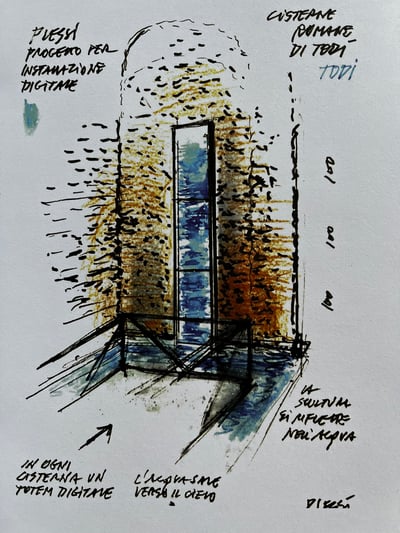 PLESSI
PROGETTO PER
INSTALLAZIONE
DIGITALE
CISTERNE
ROMANE
DI TODI
TODI
LA
SCULTURA
SI RIFLETTE
NELL'ACQUA
IN OGNI
CISTERNA UN
TOTEM DIGITALE
L'ACQUA SALE
VERSO IL CIELO